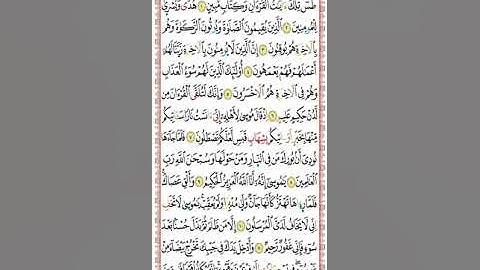 طسٓ تِلْكَ ءَايَٰتُ ٱلْقُرْءَانِ وَكِتَابٍ مُّبِينٍ ١ هُدًى وَبُشْرَىٰ
لِلْمُؤْمِنِينَ ٢ ٱلَّذِينَ يُقِيمُونَ ٱلصَّلَوٰةَ وَيُؤْتُونَ ٱلزَّكَوٰةَ وَهُم
بِٱلْءَاخِرَةِ هُمْ يُوقِنُونَ ٣ إِنَّ ٱلَّذِينَ لَا يُؤْمِنُونَ بِٱلْءَاخِرَةِ زَيَّنَّا لَهُمْ
أَعْمَٰلَهُمْ فَهُمْ يَعْمَهُونَ ٤ أُو۟لَٰٓئِكَ ٱلَّذِينَ لَهُمْ سُوٓءُ ٱلْعَذَابِ
وَهُمْ فِى ٱلْءَاخِرَةِ هُمُ ٱلْأَخْسَرُونَ ٥ وَإِنَّكَ لَتُلَقَّى ٱلْقُرْءَانَ مِن
لَّدُنْ حَكِيمٍ عَلِيمٍ ٦ إِذْ قَالَ مُوسَىٰ لِأَهْلِهِۦٓ إِنِّىٓ ءَانَسْتُ نَارًا سَـَٔاتِيكُم
مِّنْهَا بِخَبَرٍ أَوْ ءَاتِيكُم بِشِهَابٍ قَبَسٍ لَّعَلَّكُمْ تَصْطَلُونَ ٧ فَلَمَّا جَآءَهَا
نُودِىَ أَنۢ بُورِكَ مَن فِى ٱلنَّارِ وَمَنْ حَوْلَهَا وَسُبْحَٰنَ ٱللَّهِ رَبِّ
ٱلْعَٰلَمِينَ ٨ يَٰمُوسَىٰٓ إِنَّهُۥٓ أَنَا ٱللَّهُ ٱلْعَزِيزُ ٱلْحَكِيمُ ٩ وَأَلْقِ عَصَاكَ
فَلَمَّا رَءَاهَا تَهْتَزُّ كَأَنَّهَا جَآنٌّ وَلَّىٰ مُدْبِرًا وَلَمْ يُعَقِّبْ يَٰمُوسَىٰ لَا تَخَفْ
إِنِّى لَا يَخَافُ لَدَىَّ ٱلْمُرْسَلُونَ ١٠ إِلَّا مَن ظَلَمَ ثُمَّ بَدَّلَ حُسْنًۢا بَعْدَ
سُوٓءٍ فَإِنِّى غَفُورٌ رَّحِيمٌ ١١ وَأَدْخِلْ يَدَكَ فِى جَيْبِكَ تَخْرُجْ بَيْضَآءَ مِنْ